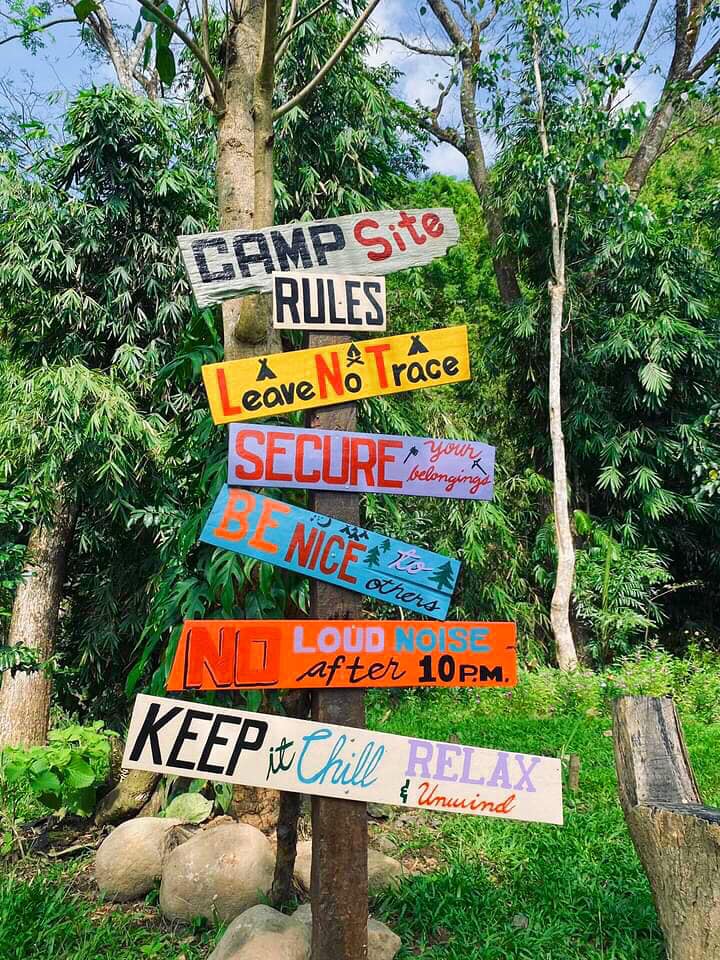 CAMP Site
RULES
Leave No Trace
SECURE your
belongings
BE NICE to
others
NO LOUD NOISE
after 10 P.M.
KEEP it Chill RELAX
& Unwind